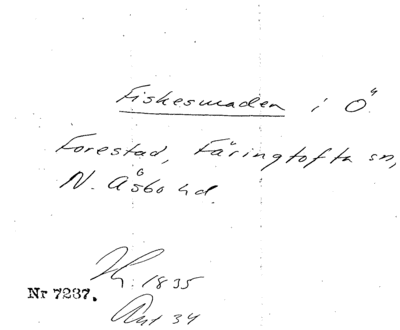 Fiskesmaden i Ö
Forestad, Färingtofta sn,
N. Åsbo hd.
1835
Nr 7237.
34